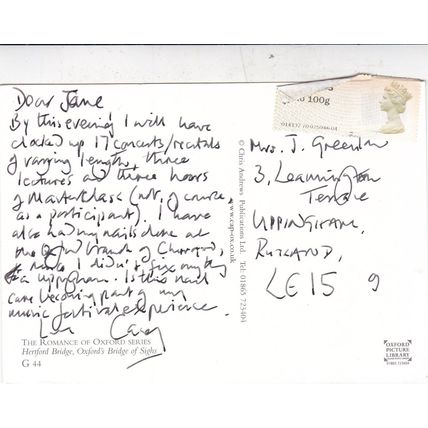 Dear Jane
By this evening I will have
clocked up 17 concerts/recitals
of varying length, three
lectures and three hours
of Masterclass (not, of course
as a participant). I have
also had my nails done at
the Oxford branch of
I didn't fix anything
Uppingham. Is this nail
care becoming part of my
music festival experience.
Love
THE ROMANCE OF OXFORD SERIES
Hertford Bridge, Oxford's Bridge of Sighs
G 44
© Chris Andrews Publications Ltd. Tel: 01865 723404
www.cap-ox.co.uk
100g
Mrs. J.
3, Leamington
Terrace
UPPINGHAM,
RUTLAND,
LE15 9
OXFORD
PICTURE
LIBRARY
01865 723404